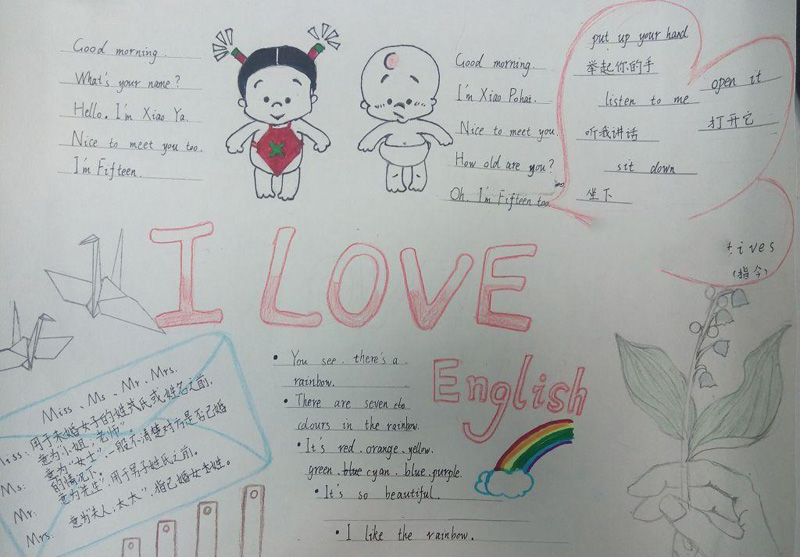 Good morning.
What's your name?
Hello. I'm Xiao Ya.
Nice to meet you too.
I'm Fifteen.
Good morning.
I'm Xiao Pohai.
Nice to meet you.
How old are you?
Oh. I'm Fifteen too.
put up your hand
举起你的手
listen to me
听我讲话
sit down
坐下
open it
打开它
tives
(指令)
I LOVE
English
Miss、Ms、Mr、Mrs.
iss:用于未婚女子的姓氏或姓名之前,
意为"小姐,老师"
Ms: 意为"女士",一般不清楚对方是否已婚
的情况下。
Mr: 意为"先生",用于男子姓氏之前。
Mrs. 意为"夫人,太太",指已婚女夫姓。
You see. there's a
rainbow.
There are seven
colours in the rainbow.
It's red. orange. yellow.
green. cyan. blue. purple.
It's so beautiful.
I like the rainbow.